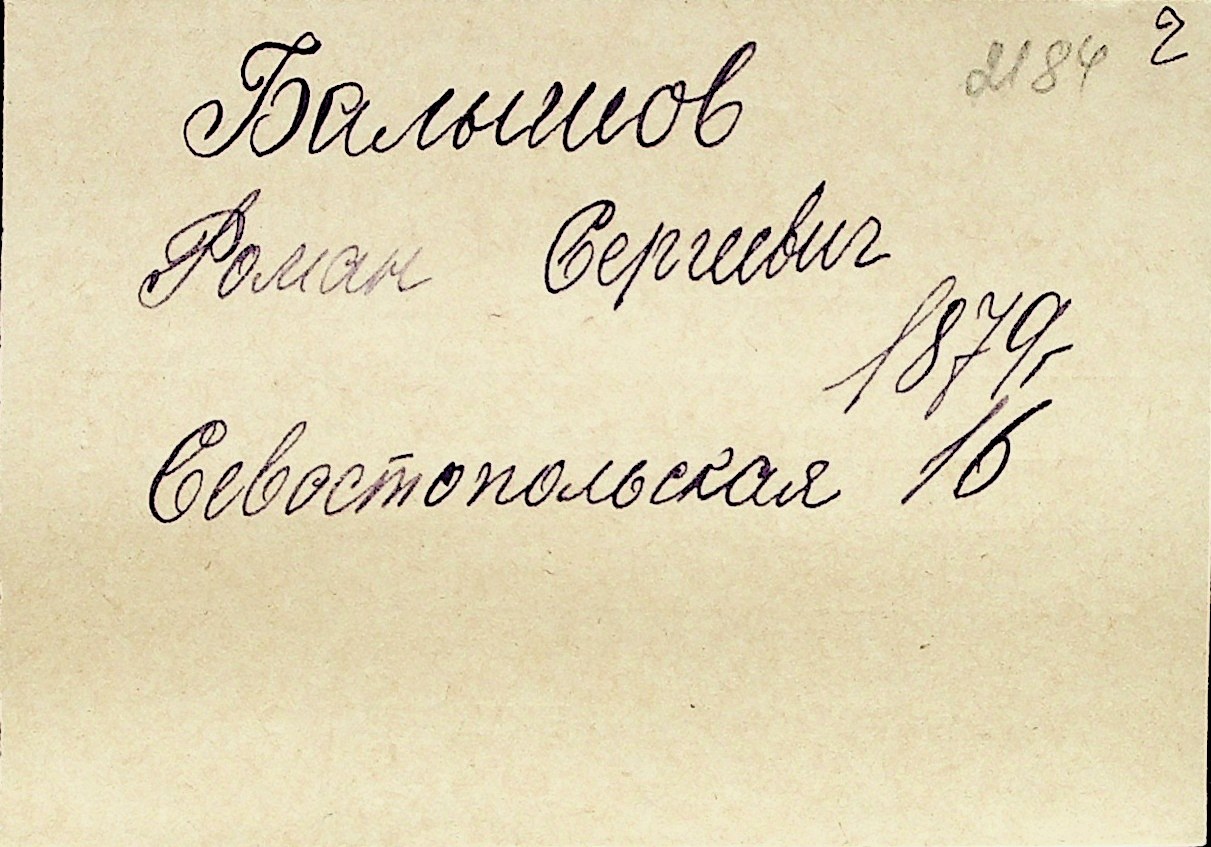 2184 2
Балышов
Роман Сергиевич
1879г
Севостопольская 16